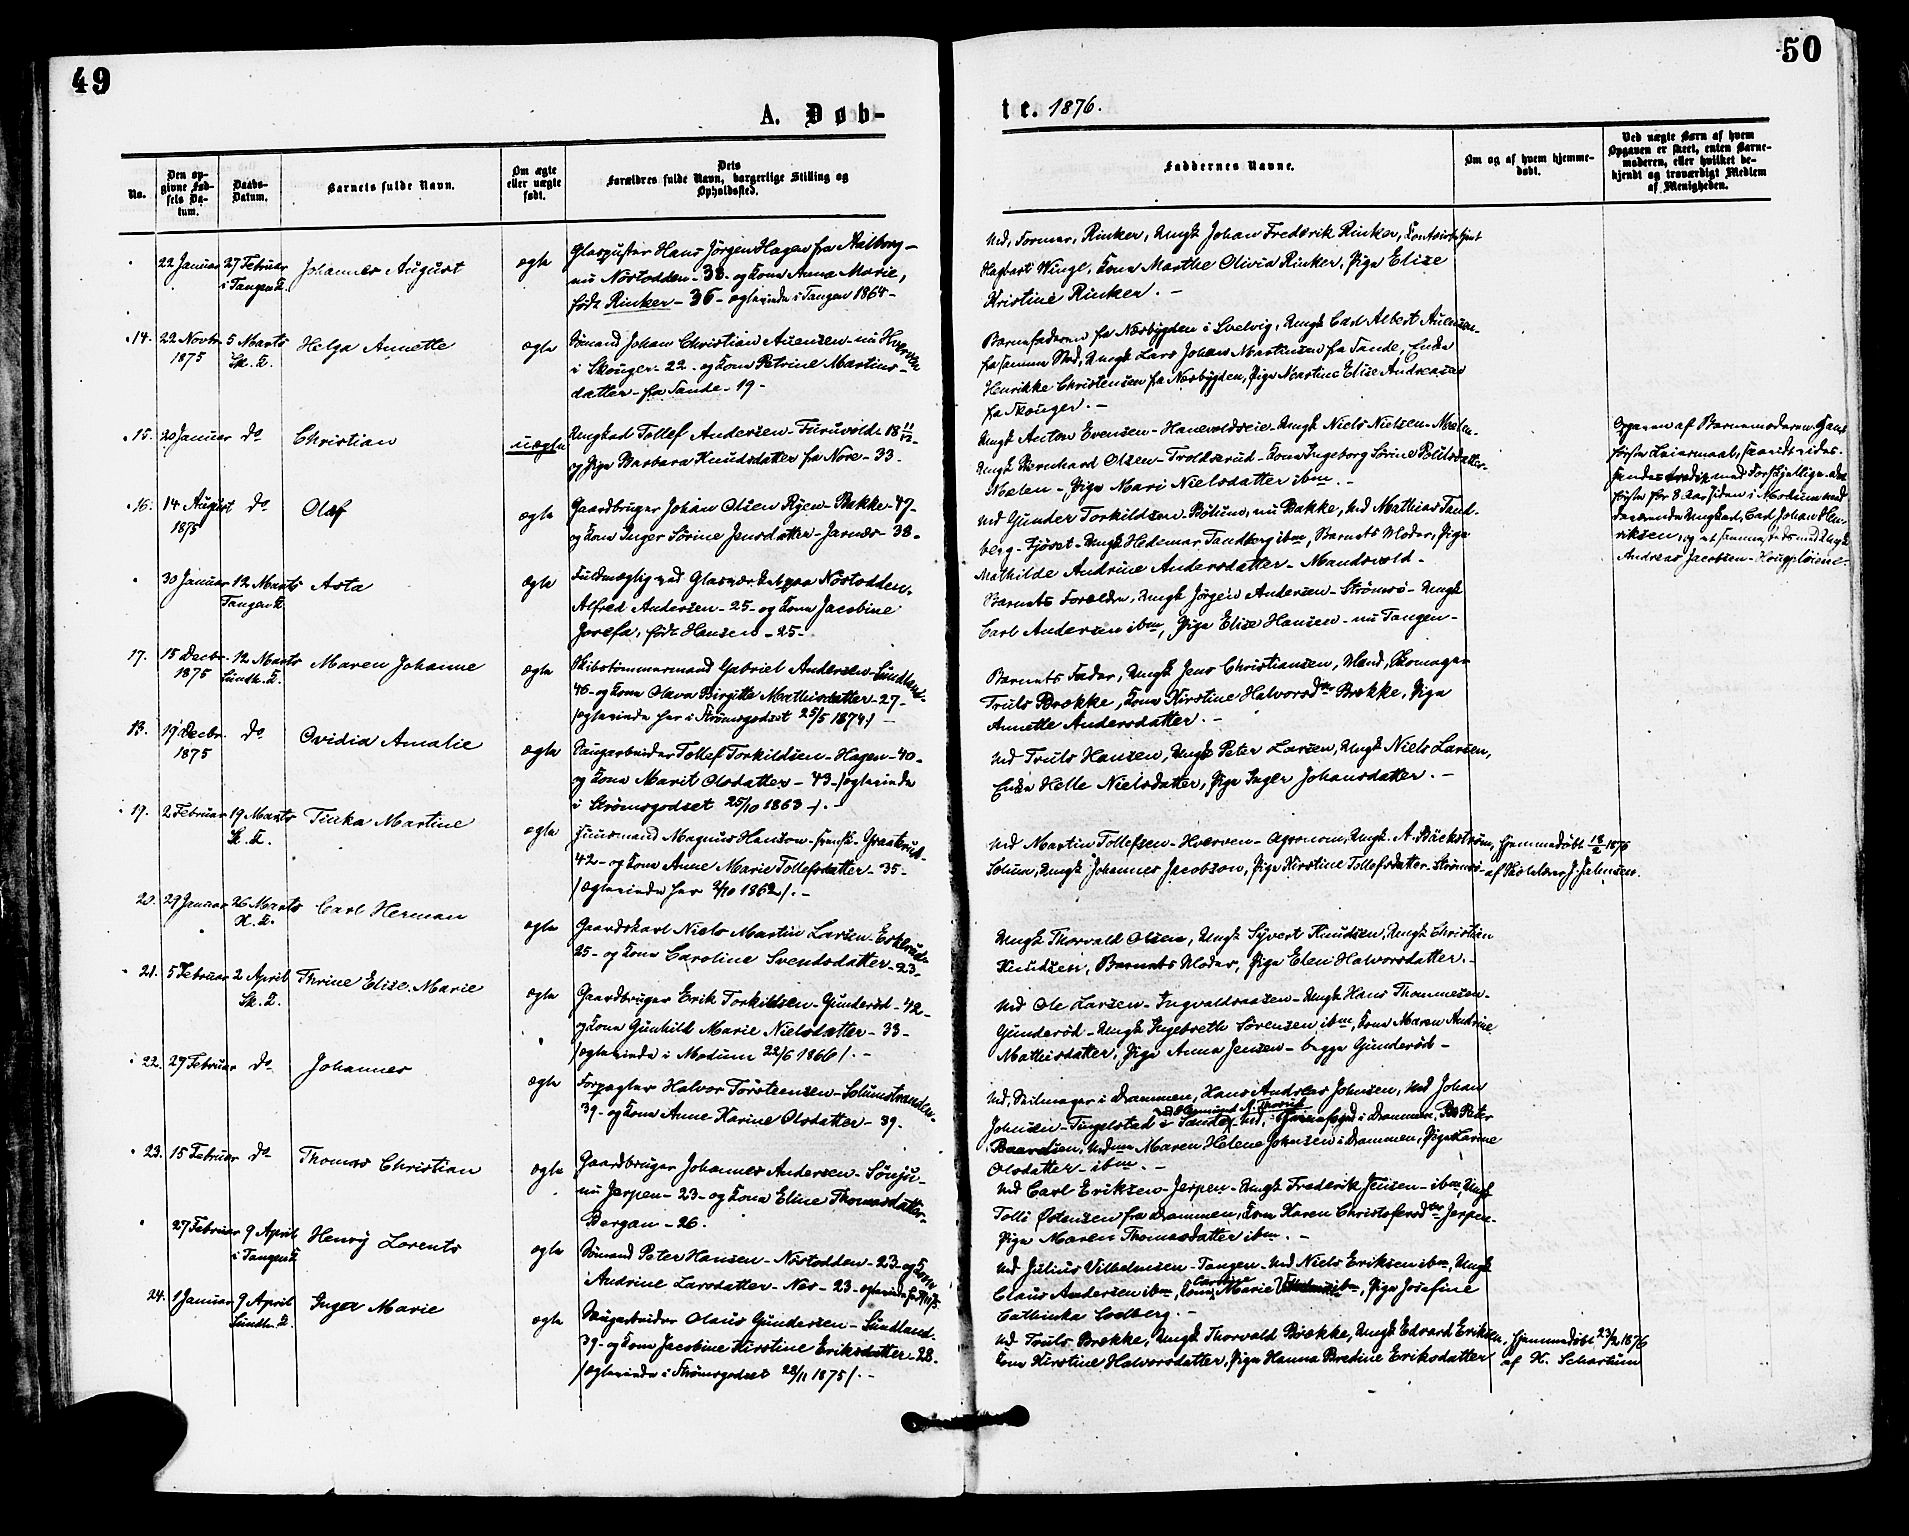 49
50
A. Døb-
te. 1876.
No.
Den op-
givne Fød-
sels Da-
tum.
Daabs-
Datum.
Barnets fulde Navn.
Om ægte
eller uægte
født.
Dets
Forældres fulde Navn, borgerlige Stilling og
Opholdssted.
Faddernes Navne.
Om og af hvem hjemme-
døbt.
Ved uægte Børn af hvem
Opgaven er skeet, enten Barne-
moderen, eller hvilket be-
kjendt og troværdigt Medlem
af Menigheden.
22 Januar 27 Februar
i Tangen K.
Johannes August
ægte
Glaspuster Hans Jørgen Hagen fra Aalborg-
nu Nøstodden- 38- og Kona Anna Marie,
født Rinker- 36- ægteviede i Tangen 1864-
Md, Former, Rinker, Ungk Johan Frederik Rinker,
Wingl, Kona Marthe Olivia Rinker, Pige Elise
Kristine Rinker. -
14. 22 Novbr. 5 Marts
1875 Sk. K.
Helga Annette
ægte
Sømand Johan Christian Auensen- nu
i Skouger- 22- og Kona Petrine Martins-
datter- fra Sande- 19-
Barnefaderen fra Nesbygden i Svelvig, Ungk Carl Albert
fra samme Sted, Ungk Lars Johan Martinsen fra Sande, Enke
Henrikke Christensen fra Nesbygden, Pige Martine Elise Andreasen
fra Skouger. -
15. 20 Januar do
Christian
uægte
Ungkarl Tollef Andersen- Furuvold- 18 11/12-
og Pige Barbara Knudsdatter fra Nore- 33-
Ungk Anton Evensen- Ungk Niels Nielsen- Mælen-
Ungk Bernhard Olsen- Troldsrud- Kona Ingeborg Sørine
Mælen- Pige Mari Nielsdatter ibm. -
Opgaven af Barnemoderen.
første Leiermaal,
med Forskjellige-
første for 8 Aar siden i Modum med
Ungkarl, Carl Johan Hen-
riksen,
Andreas Jacobsen-
16. 14 August do
1875
Olaf
ægte
Gaardbruger Johan Olsen Ryen- Bakke- 47-
og Kona Inger Sørine Jensdatter- Jarnæs- 38-
Md Gunder Torkildsen- Bolum, nu Bakke, Md Mathias Tand-
berg- Fjøset- Ungk Hedemar Tandberg ibm, Barnets Moder, Pige
Mathilde Andrine Andersdatter- Mandsvold-
30 Januar 12 Marts
Tangen K.
Asta
ægte
Fuldmægtig ved Glasværket paa Nøstodden,
Alfred Andersen- 25- og Kona Jacobine
Josefa, født Hansen- 25-
Barnets Forældre, Ungk Jørgen Andersen- Strømsø- Ungk
Carl Andersen ibm, Pige Elise Hansen- nu Tangen-
17. 18 Decbr. 12 Marts
1875 Sundh. K.
Maren Johanne
ægte
Skibstømmermand Gabriel Andersen- Sundland-
46- og Kona Olava Birgitte Mathisdatter- 27-
/ægteviede her i Strømsgodset 25/5 1874/ -
Barnets Fader, Ungk Jens Christiansen, Mand, Skomager
Truls Brække, Kona Kirstine Halvorsdtr Brække, Pige
Annette Andersdatter. -
18. 19 Decbr. do
1875
Ovidia Amalie
ægte
Saugarbeider Tollef Torkildsen- Hagen- 40-
og Kona Marit Olsdatter- 43- /ægteviede
i Strømsgodset 25/10 1863/. -
Md Truls Hansen, Ungk Peter Larsen, Ungk Niels Larsen,
Enke Helle Nielsdatter, Pige Inger Johansdatter. -
19. 2 Februar 19 Marts
Sk. K.
Tinka Martine
ægte
Huusmand Magnus Hanson- svensk- Graaterud-
42- og Kona Anne Marie Tollefsdatter- 35-
/ægteviede her 2/10 1862/. -
Md Martin Tollefsen- Hverven- Agronom, Ungk. A. Bäckström,
Solum, Ungk Johannes Jacobson, Pige Kirstine Tollefsdatter- Strømsø-
Hjemmedøbt 18/2 1876
af Skolelærer J. Salmsen.
20. 29 Januar 26 Marts
Sk. K.
Carl Herman
ægte
Gaardskarl Niels Martin Larsen- Eskerud-
25- og Kona Caroline Svendsdatter- 23-
Ungk Thorvald Olsen, Ungk Syvert Knudsen, Ungk Christian
Knudsen, Barnets Moder, Pige Elen Halvorsdatter. -
21. 5 Februar 2 April
Sk. K.
Thrine Elise Marie
ægte
Gaardbruger Erik Torkildsen- Gunderød- 42-
og Kona Gunhild Marie Nielsdatter- 33-
/ægteviede i Modum 22/6 1866/. -
Md Ole Larsen- Ingvaldsaasen- Ungk Hans Thommesen-
Gunderød- Ungk Ingebreth Sørensen ibm, Kona Maren Andrine
Mathisdatter, Pige Anna Jensen- begge Gunderød-
22. 27 Februar do
Johannes
ægte
Forpagter Halvor Torsteensen- Solumstranden-
39- og Kona Anne Karine Olsdatter- 39-
Md, Seilmager i Drammen, Hans Andreas Johnsen, Md Johan
Johnsen- Tingelstad i Sande, i Drammen, Peter
Maren Helene Johnsen i Drammen, Pige Karine
Olsdatter- ibm. -
23. 15 Februar do
Thomas Christian
ægte
Gaardbruger Johannes Andersen- Sønju-
nu Jerpen- 23- og Kona Eline Thomasdatter-
Bergan- 26.
Md Carl Eriksen- Jerpen- Ungk Frederik Jensen- ibm, Ungk
Tolli Østensen fra Drammen, Kona Karen Christofersdtr Jerpen-
Pige Maren Thomasdatter ibm. -
27 Februar 9 April
i Tangen K
Henry Lorents
ægte
Sømand Peter Hansen- Nøstodden- 23- og Kona
Andrine Larsdatter- Nes- 23- ægteviede
Md Julius Vilhelmsen- Tangen- Md Niels Eriksen ibm, Ungk
Claus Andersen ibm, Kona Marie ibm, Pige Josefine
Cathinka Sodberg. -
24. 1 Januar 9 April
Sundh. K.
Inger Marie
ægte
Saugarbeider Olaus Gundersen- Sundland-
39- og Kona Jacobine Kirstine Eriksdatter- 28-
/ægteviede i Strømsgodset 28/11 1875/. -
Md Truls Brække, Ungk Thorvald Brække, Ungk Edvard Eriksen,
Kona Kirstine Halvorsdatter, Pige Hanna Bredine Eriksdatter
Hjemmedøbt 23/2 1876
af K. Scharkum